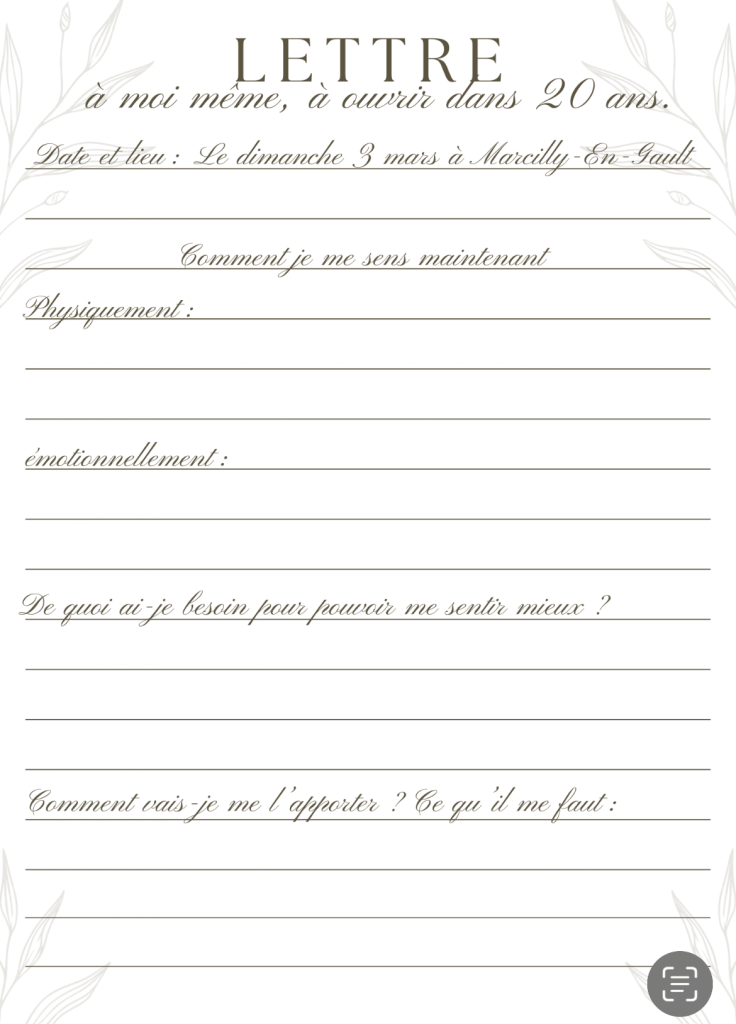 LETTRE
à moi même, à ouvrir dans 20 ans.
Date et lieu : Le dimanche 3 mars à Marcilly-En-Gault
Comment je me sens maintenant
Physiquement :
émotionnellement :
De quoi ai-je besoin pour pouvoir me sentir mieux ?
Comment vais-je me l'apporter ? Ce qu'il me faut :